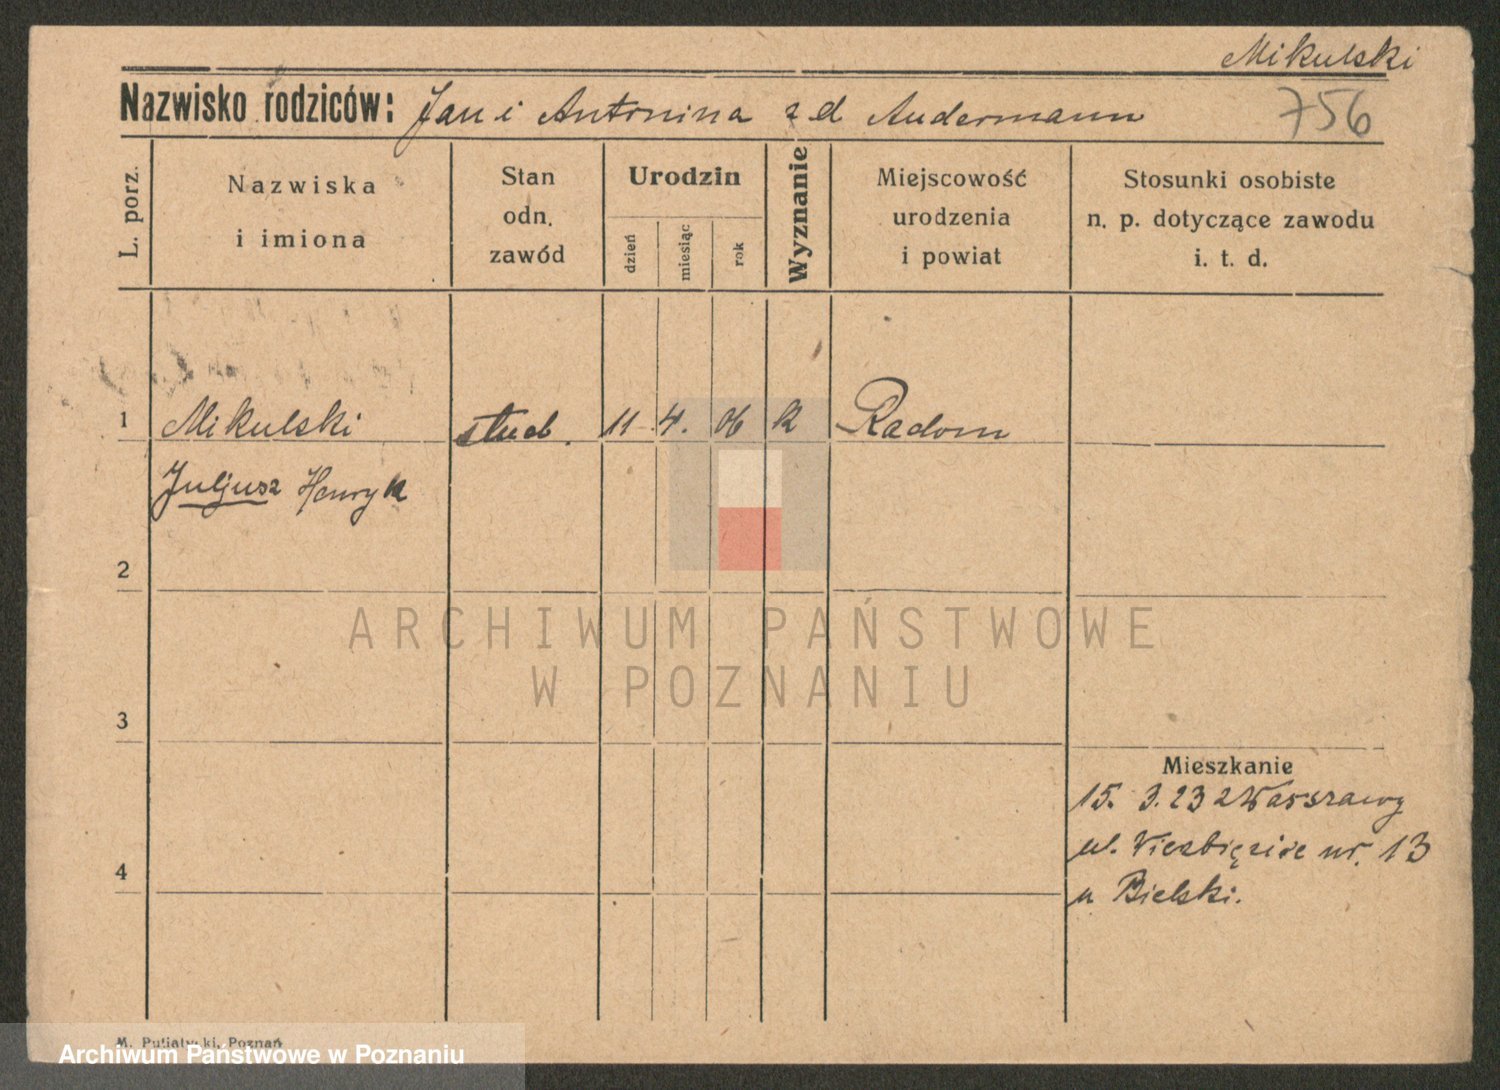 Mikulski
Nazwisko rodziców: Jan i Antonina z d Audermann
756
L. porz.
Nazwiska
i imiona
Stan
odn.
zawód
Urodzin
dzień
miesiąc
rok
Wyznanie
Miejscowość
urodzenia
i powiat
Stosunki osobiste
n. p. dotyczące zawodu
i. t. d.
1 Mikulski stud. 11 4. 06 k Radom
Juljusz Henryk
2
ARCHIWUM PAŃSTWOWE
W POZNANIU
3
Mieszkanie
15. 3. 23 z Warszawy
ul. nr. 13
4
u Bielski.
M. Putiatycki, Poznań
Archiwum Państwowe w Poznaniu